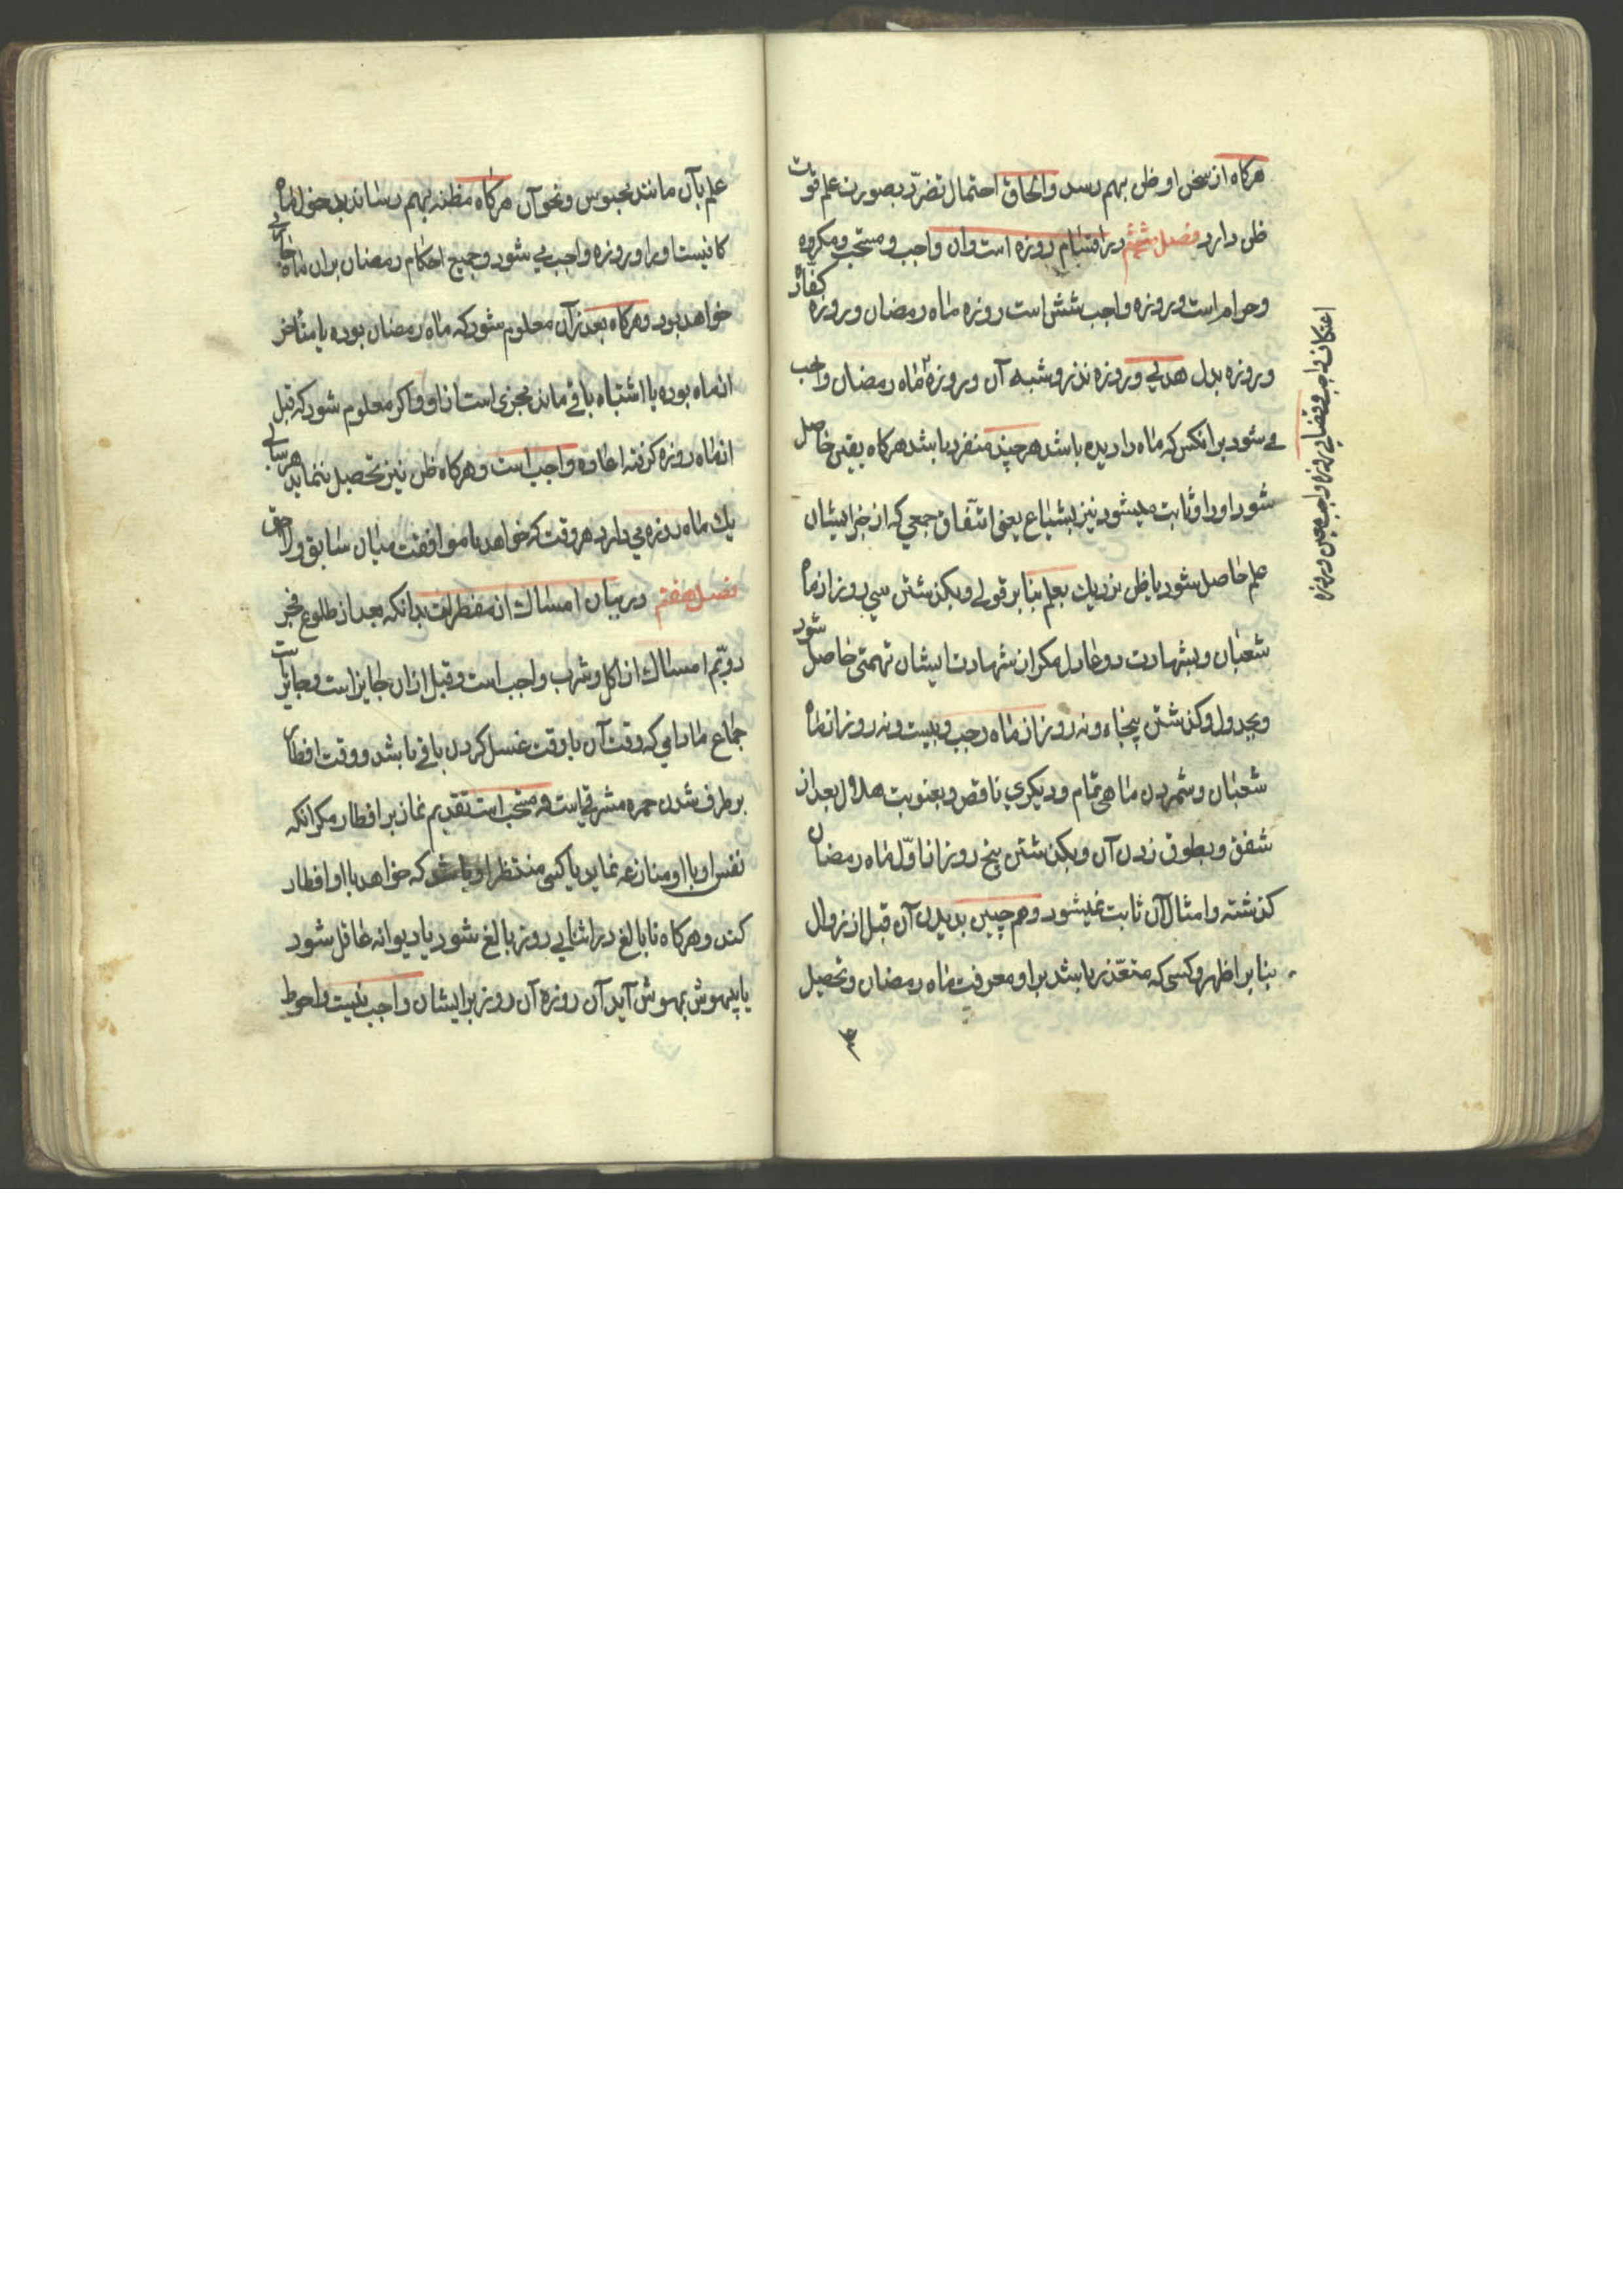 هرکاه از سخن او ظن بهم رسد و الحاق احتمال تضرّر بصورت علم قوت
ظن دارد فصل ششم در اقسام روزه است وان واجب و مستحب و مکروه
و حرام است و روزه واجب شش است روزه ماه رمضان و روزه کفاره
و روزه بدل هدي و روزه نذر و شبه آن و روزه ماه رمضان واجب
می شود بر انکس که ماه را دیده باشد هر چند منفرد باشد هرکاه یقین حاصل
شود او را و ثابت میشود نیز بشیاع یعنی اتّفاق جمعي که از خبر ایشان
علم حاصل شود یا ظن نزدیك بعلم بنا بر قولی و بکذشتن سي روز از ماه
شعبان و بشهادت دو عادل مکر از شهادت ایشان تهمتی حاصل شود
و بجدول و کذشتن پنجاه و نه روز از ماه رجب و بیست و نه روز از ماه
شعبان و شمردن ماهی تمام و دیکري ناقص و بغیوبت هلال بعد از
شفق و بطوق زدن آن و بکذشتن پنج روز از اوّل ماه رمضان
کذشته و امثال آن ثابت نمیشود و هم چنین بدیدن آن قبل از زوال
بنا بر اظهر و کسی که متعذّر باشد بر او معرفت ماه رمضان و تحصیل
اعتکاف واجب و قضاي روزه واجب معین و روزه
علم بآن مانند محبوس و نحو آن هرکاه مظنه بهم رساند بدخول ماه
کافیست او را و روزه واجب می شود و جمیع احکام رمضان بران ماه جاري
خواهد بود و هرکاه بعد از آن معلوم شود که ماه رمضان بوده یا متأخر
از ماه بوده یا اشتباه باقی ماند مجزی است از او و اکر معلوم شود که قبل
از ماه روزه کرفته اعاده واجب است و هرکاه ظن نیز تحصیل ننماید هر سالی
یك ماه روزه می دارد هر وقت که خواهد با موافقت میان سابق و لاحق
فصل هفتم در بیان امساك از مفطرات بدانکه بعد از طلوع فجر
دویّم امساك از اکل و شرب واجب است و قبل ازان جایز است و جایز است
جماع مادامي که وقت آن با وقت غسل کردن باقی باشد و وقت افطار
بر طرف شدن حمره مشرقیست و مستحب است تقدیم نماز بر افطار مکر انکه
نفس او با او منازعه نماید یا کسی منتظر او باشد که خواهد با او افطار
کند و هرکاه نابالغ در اثنای روز بالغ شود یا دیوانه عاقل شود
یا بیهوش بهوش آید آن روزه آن روز بر ایشان واجب نیست و احوط